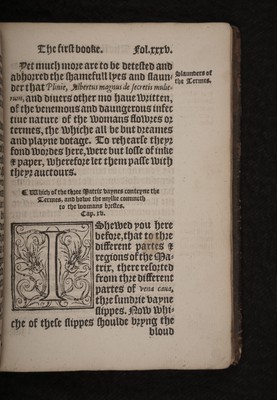 The first booke. Fol.xxxv.
Yet much more are to be detested and
abhorred the shamefull lyes and slaun-
der that Plinie, Albertus magnus de secretis mulie-
rum, and divers other mo haue written,
of the venemous and daungerous infec
tive nature of the womans flowres or
termes, the whiche all be but dreames
and playne dotage. To rehearse they
fond wordes here, were but losse of inke
& paper, wherefore let them passe with
they auctours.
Slaunders of
the Termes.
Which of the three Matrix vaynes conteyne the
Termes, and howe the mylke commeth
to the womans brestes.
Cap. rv.
I Shewed you here
before, that to thre
different partes &
regions of the Ma-
trix, there resorted
from thre different
partes of vena caua,
thre sundrie vayne
slippes. Now whi-
che of these slippes shoulde bryng the
bloud